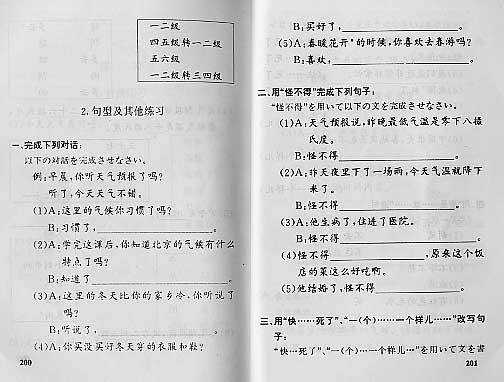 一二级
四五级转一二级
五六级
一二级转三四级
2. 句型及其他练习
一、完成下列对话:
以下の対話を完成させなさい。
例:早晨,你听天气预报了吗?
听了,今天天气不错。
(1)A:这里的气候你习惯了吗?
B:习惯了,。
(2)A:学完这课后,你知道北京的气候有什么
特点了吗?
B:知道了。
(3)A:这里的冬天比你的家乡冷,你听说了
吗?
B:听说了,。
(4)A:你买没买好冬天穿的衣服和鞋?
200
B:买好了,。
(5)A:春暖花开*的时候,你喜欢去春游吗?
B:喜欢,。
二、用“怪不得”完成下列句子:
“怪不得”を用いて以下の文を完成させなさい。
(1)A:天气预报说,昨晚最低气温是零下八摄
氏度。
B:怪不得。
(2)A:昨天夜里下了一场雨,今天气温就降下
来了。
B:怪不得。
(3)A:他生病了,住进了医院。
B:怪不得。
(4)怪不得,原来这个饭
店的菜这么好吃啊。
(5)他结婚了,怪不得。
三、用“快……死了”、“一(个)……一个样儿……”改写句
子:
“快…死了”、“一(个)…一个样儿…”を用いて文を書
201